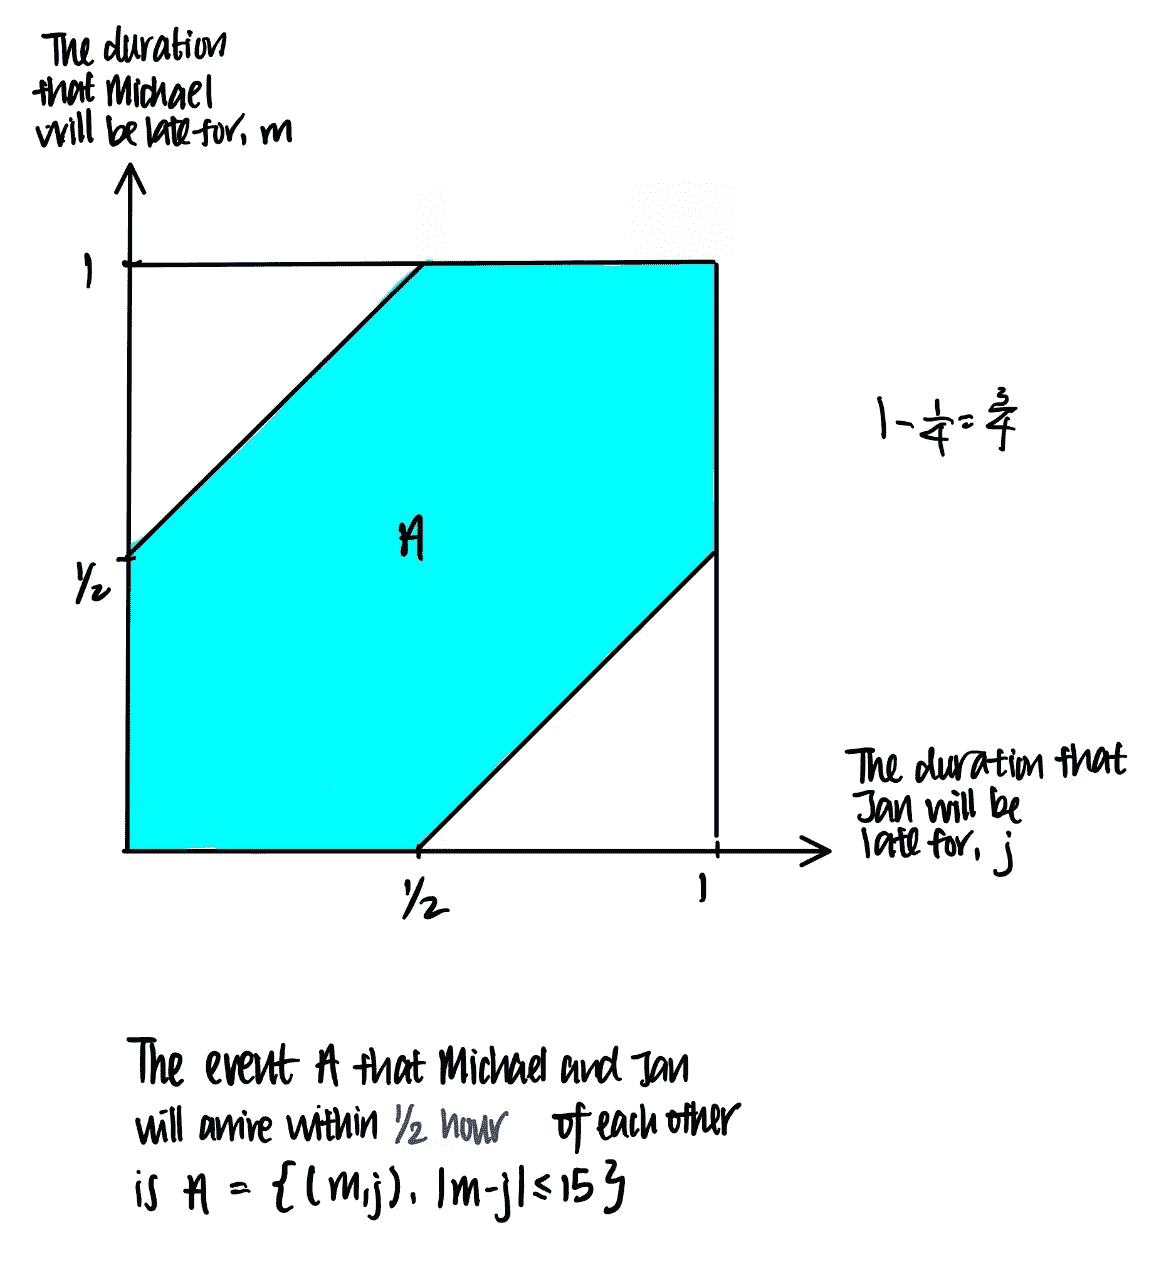 The duration
that Michael
will be late for, m
1
1/2
A
1 - 1/4 = 3/4
The duration that
Jan will be
late for, j
1/2
1
The event A that Michael and Jan
will arrive within 1/2 hour of each other
is A = {(m,j). |m-j| ≤ 15}